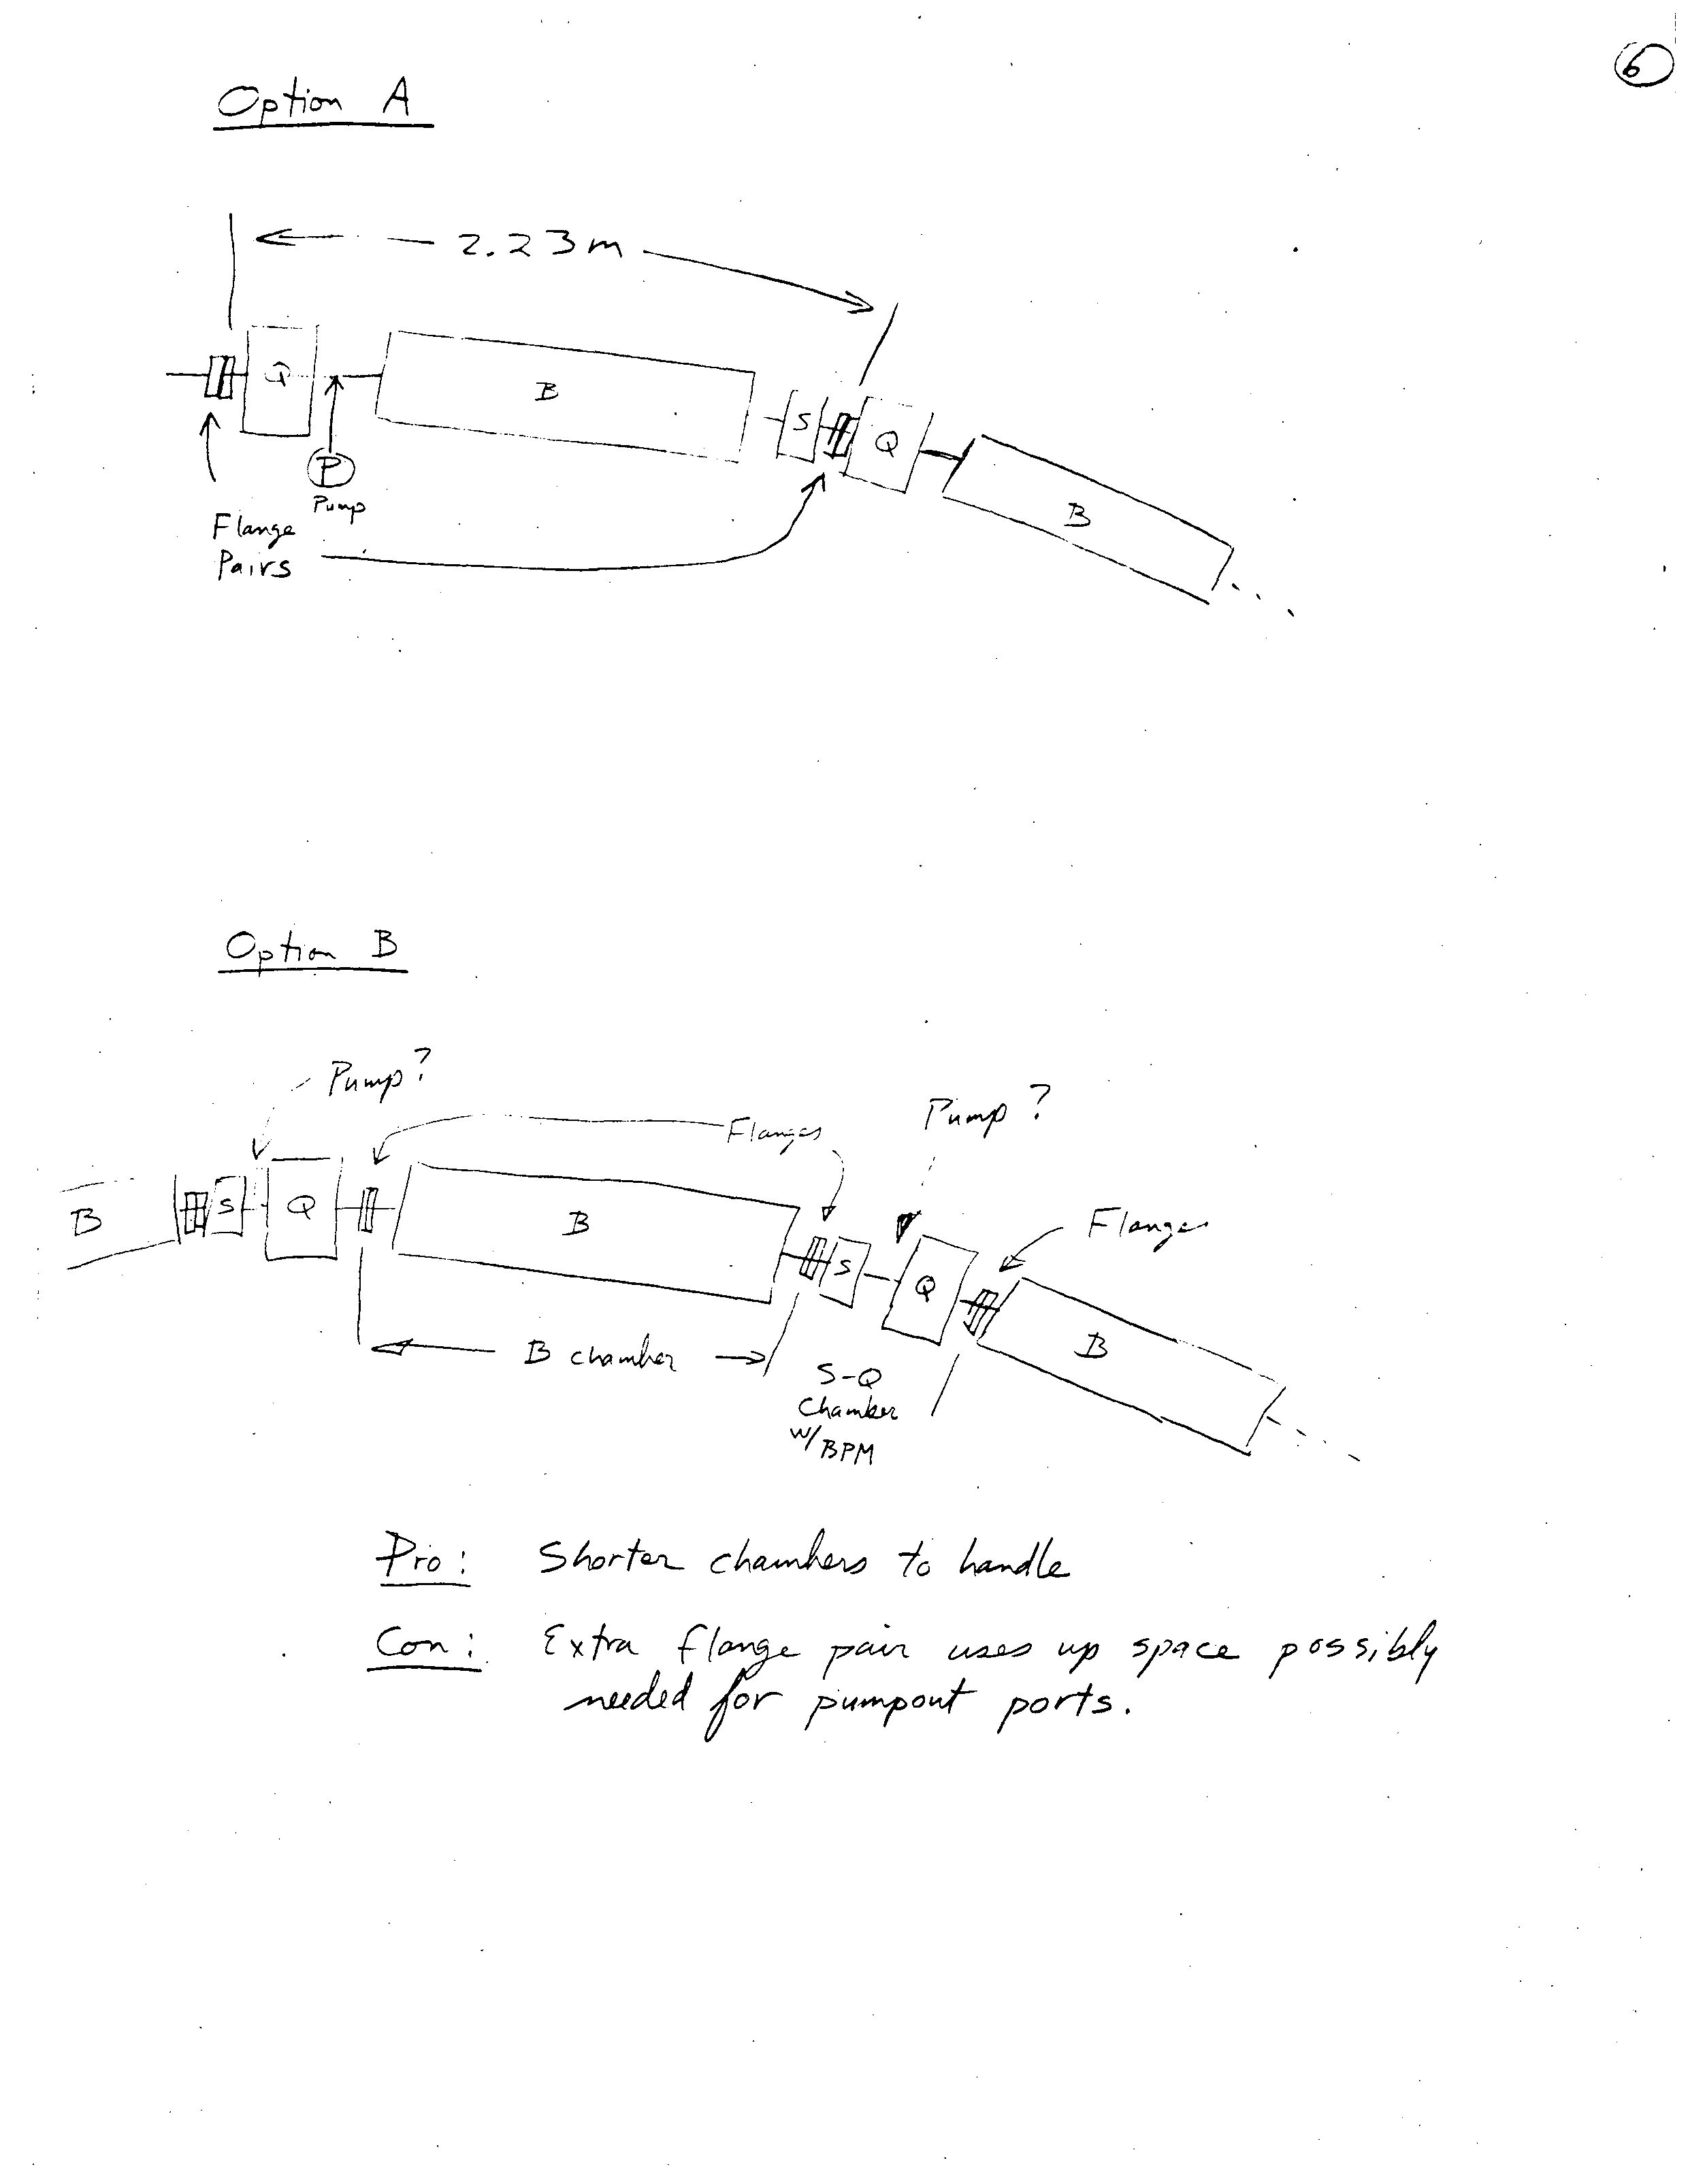 6
Option A
2.23m
Q
B
S
Q
B
P
Pump
Flange
Pairs
Option B
Pump?
Flanges
Pump?
B
S
Q
B
S
Q
Flanges
B
B chamber
S-Q
Chamber
w/BPM
Pro: Shorter chambers to handle
Con: Extra flange pair uses up space possibly
needed for pumpout ports.